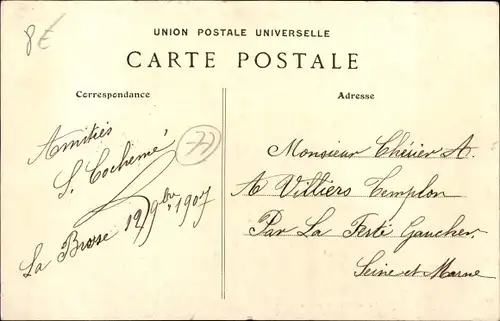 8€
UNION POSTALE UNIVERSELLE
CARTE POSTALE
Correspondance
Adresse
Amitiés
S. Cochemé
77
La Brosse 12/9bre 1907
Monsieur Chévier A.
A Villiers Templon
Par La Ferté Gaucher
Seine et Marne